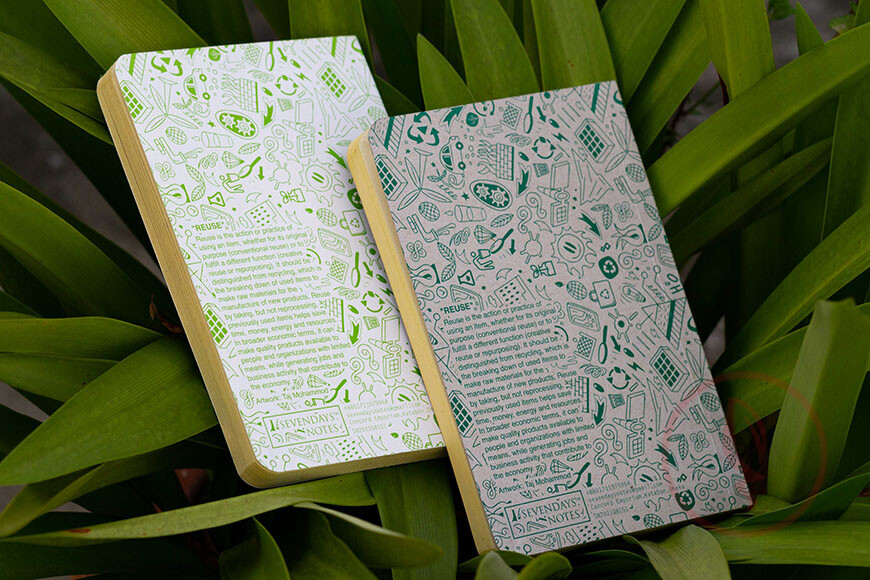 "REUSE"
Reuse is the action or practice of
using an item, whether for its original
purpose (conventional reuse) or to
fulfill a different function (creative
reuse or repurposing). It should be
distinguished from recycling, which is
the breaking down of used items to
make raw materials for the
manufacture of new products. Reuse
taking, but not reprocessing,
previously used items helps save
time, money, energy and resources
In broader economic terms, it can
make quality products available to
people and organizations with
means, while generating jobs and
the economy.
Artwork: Taj Mohammod
SEVENDAYS
NOTES
"REUSE"
Reuse is the action or practice of
using an item, whether for its original
purpose (conventional reuse) or to
fulfill a different function (creative
reuse or repurposing). It should be
distinguished from recycling, which
the breaking down of used items to
make raw materials for the
manufacture of new products. Reuse
by taking, but not reprocessing,
previously used items helps save
time, money, energy and resources
In broader economic terms, it can
make quality products available to
people and organizations with limited
means, while generating jobs and
business activity that contribute to
the economy.
Artwork: Taj Mohammod
SEVENDAYS
NOTES